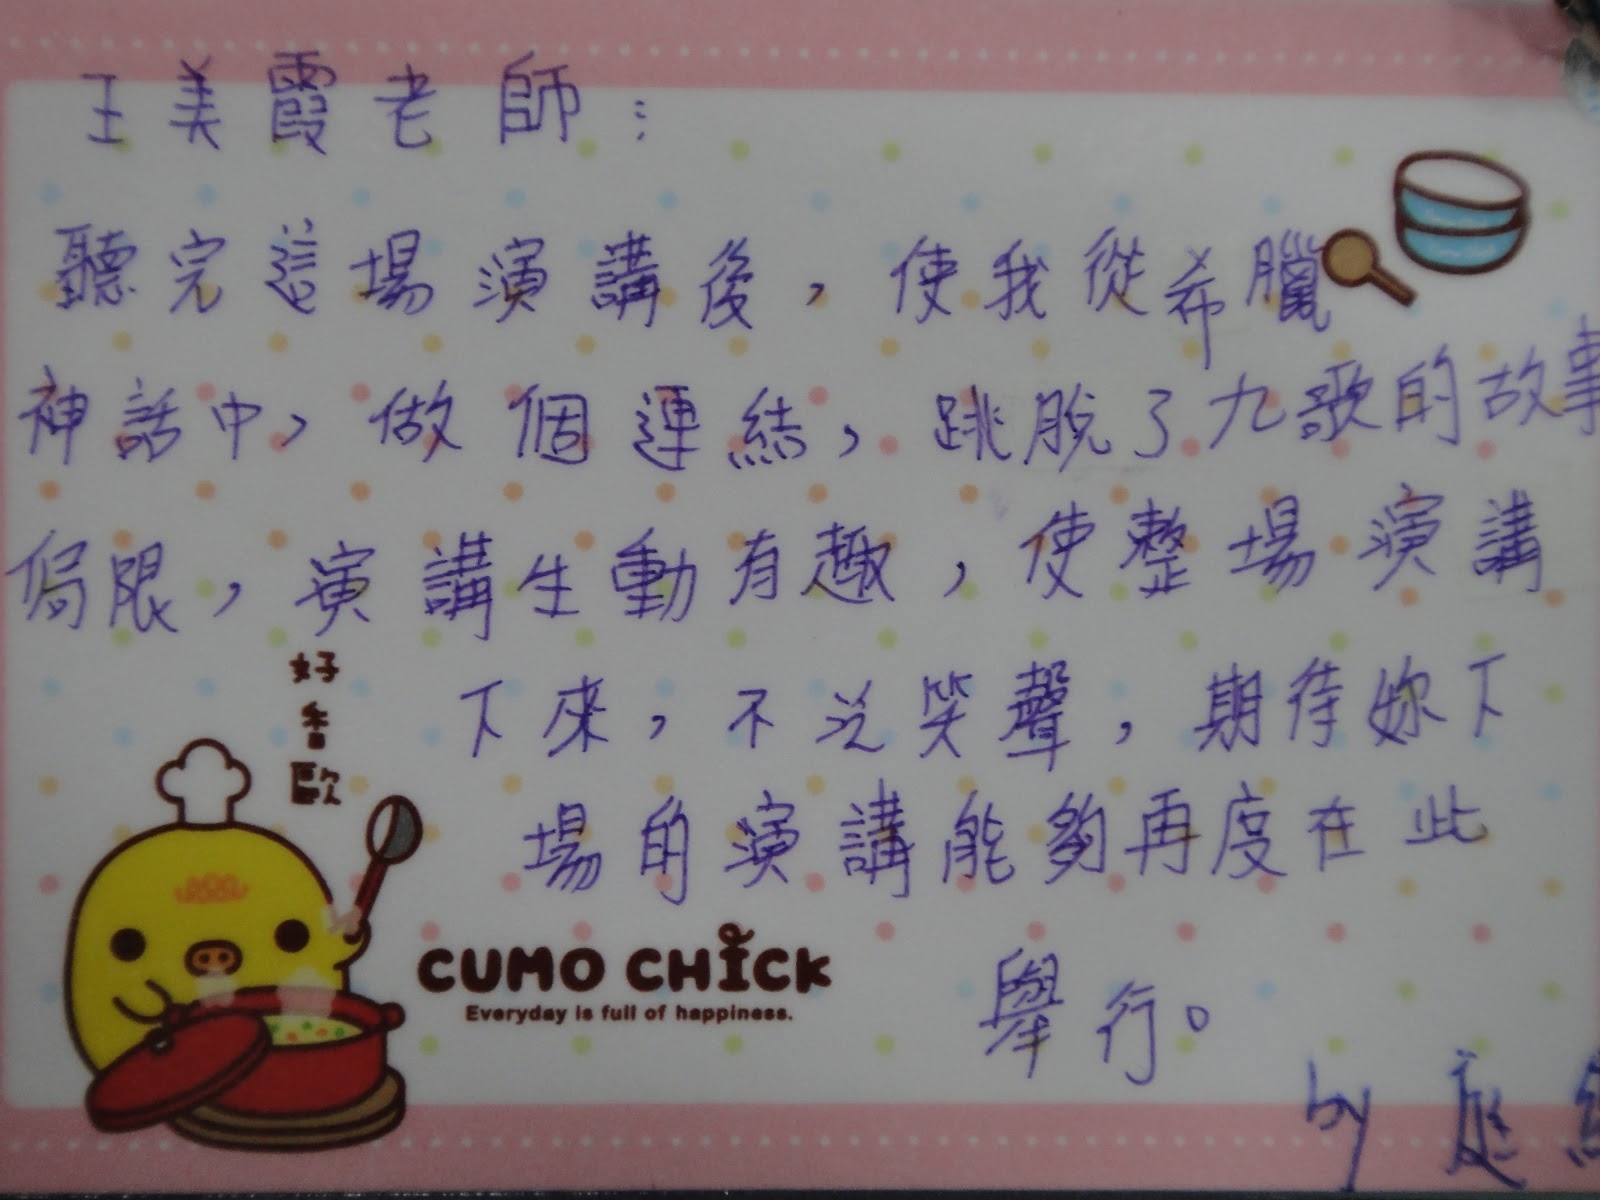 王美霞老師：
聽完這場演講後，使我從希臘
神話中，做個連結，跳脫了九歌的故事
侷限，演講生動有趣，使整場演講
下來，不泛笑聲，期待妳下
場的演講能夠再度在此
舉行。
by 庭
好香歐
CUMO CHICK
Everyday is full of happiness.